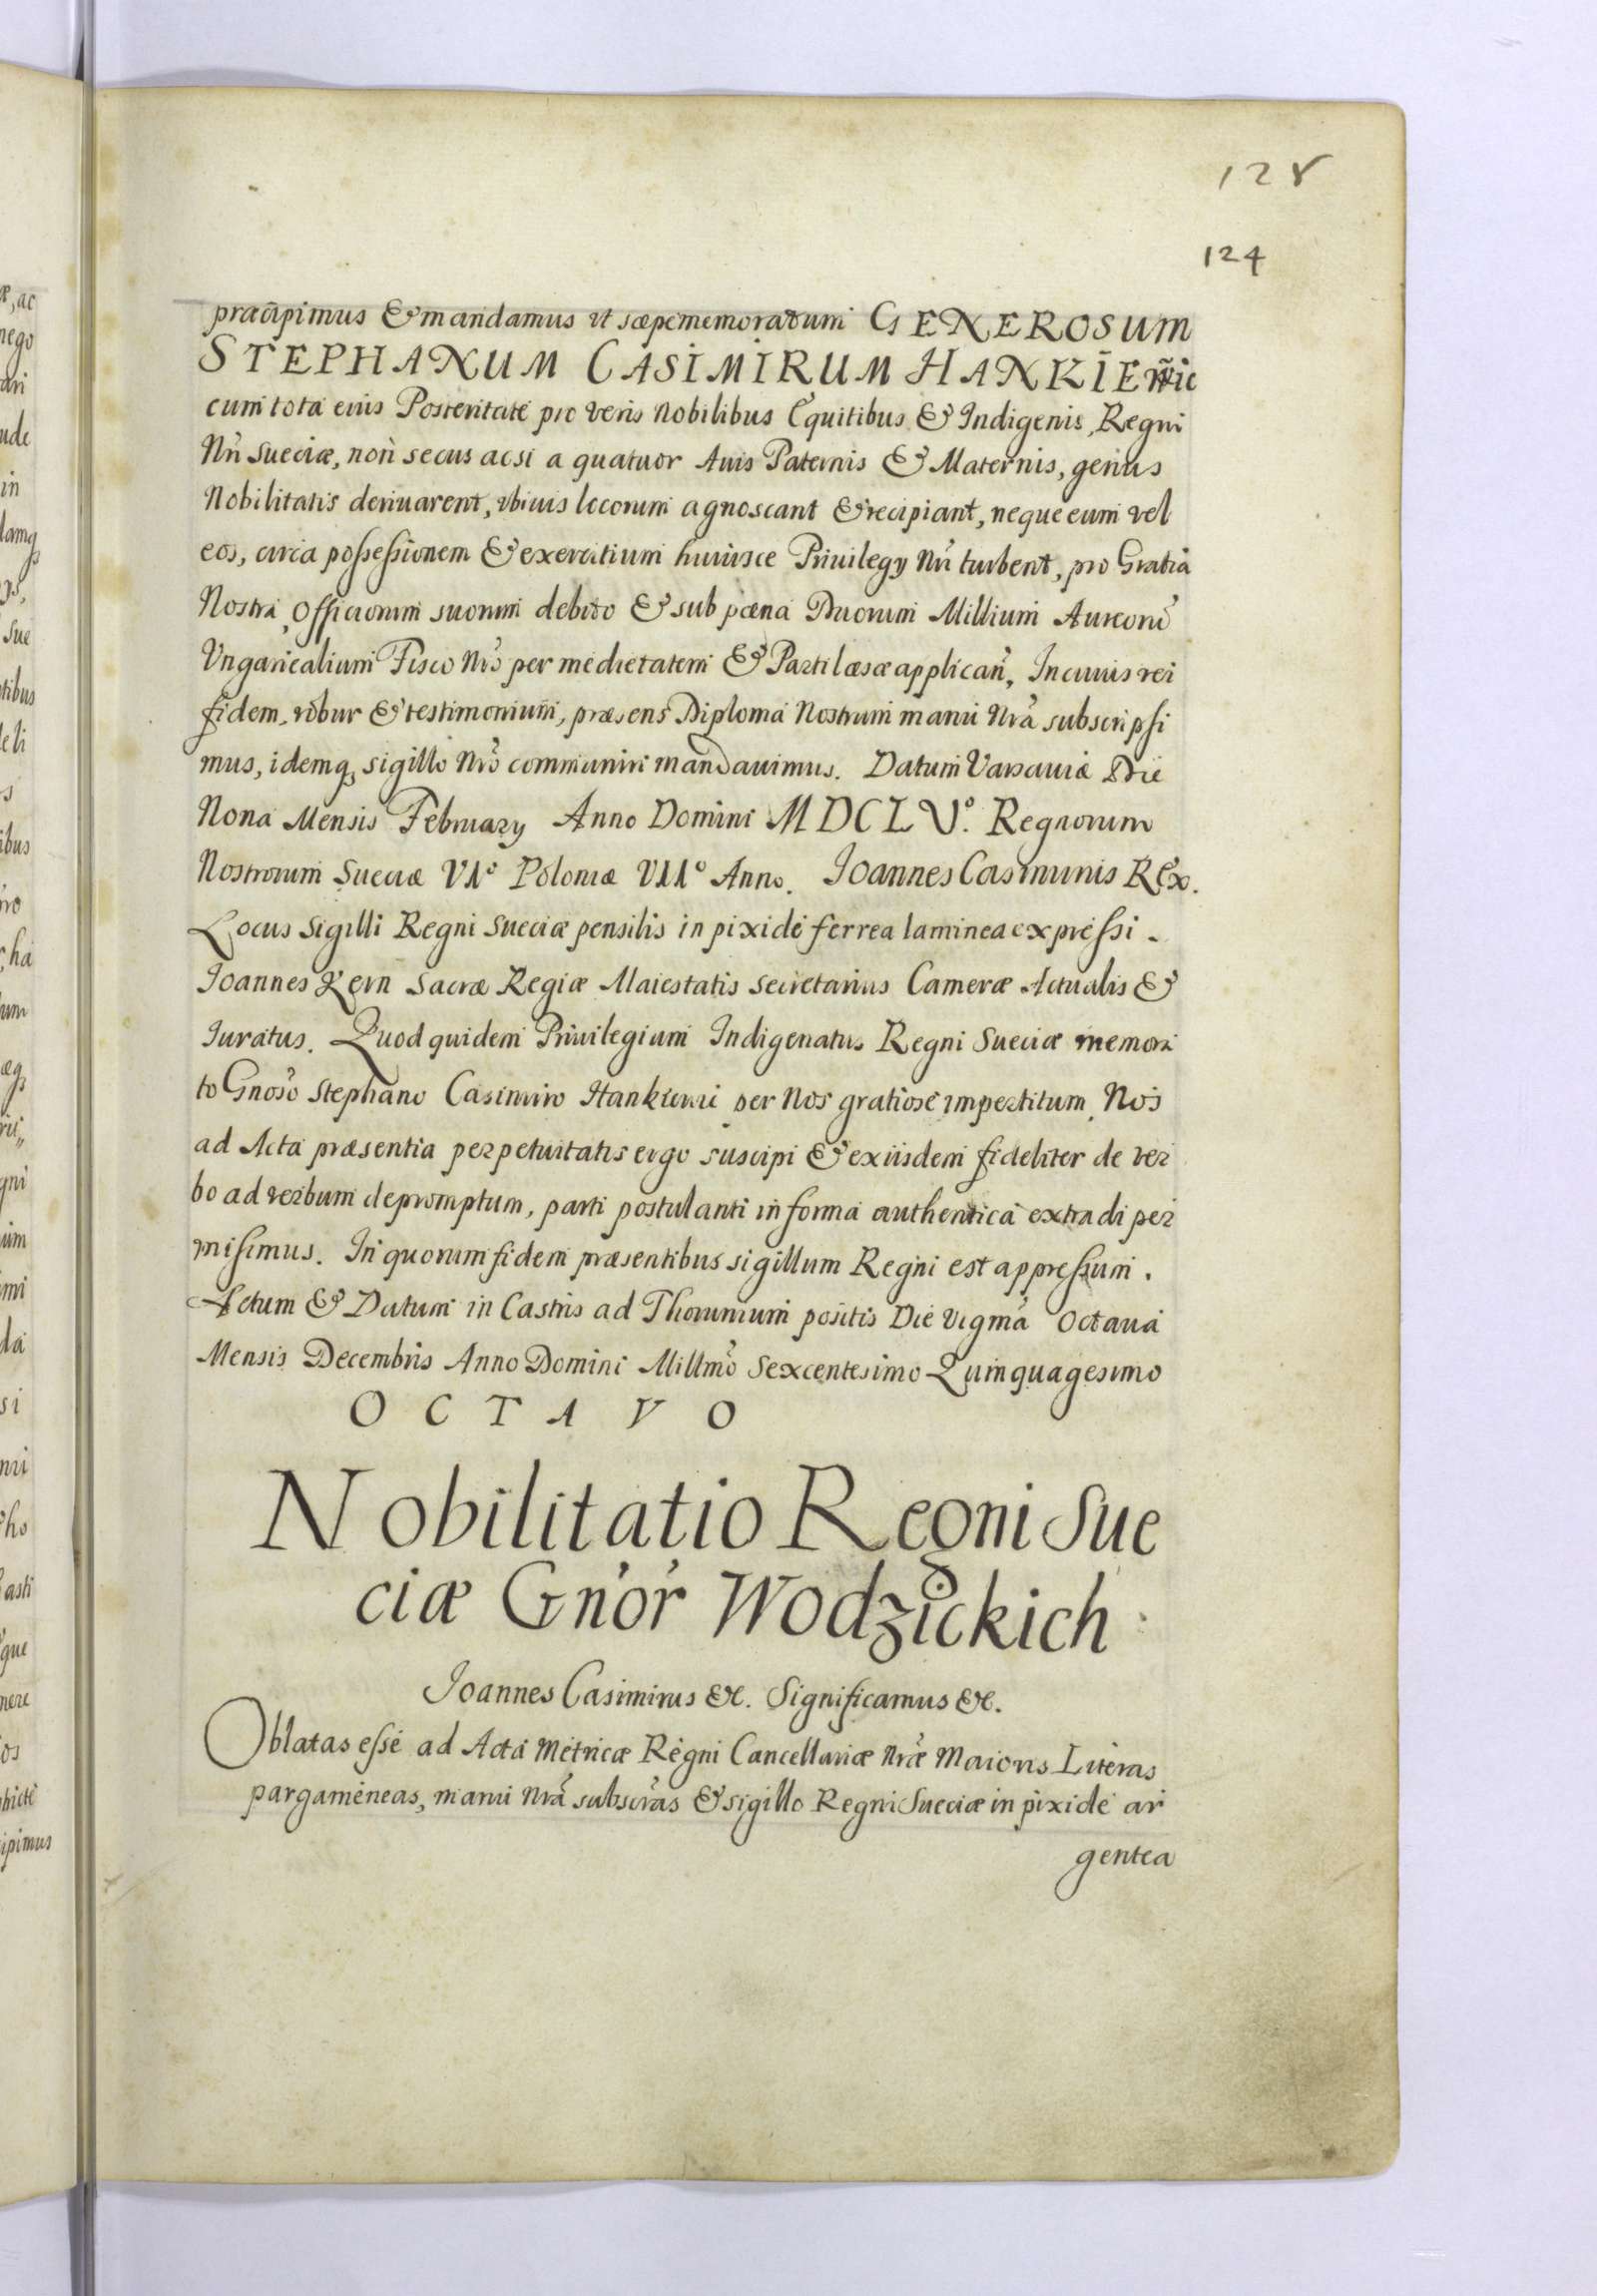 128
124
præcipimus & mandamus vt sæpememoratum GENEROSUM
STEPHANUM CASIMIRUM HANKIEwic
cum tota eius Posteritate pro veris Nobilibus Equitibus & Indigenis, Regni
Nrĩ Sueciæ, non secus acsi a quatuor Auis Paternis & Maternis, genus
Nobilitatis deriuarent, vbiuis locorum agnoscant & recipiant, neque eum vel
eos, circa possessionem & exercitium huiusce Priuilegy Nrĩ turbent, pro Gratia
Nostra, Officiorum suorum debito & sub pœna Duorum Millium Aureorũ
Vngaricalium Fisco Nrõ per medietatem & Parti læsæ applicañ, In cuius rei
fidem, robur & testimonium, præsens Diploma Nostrum manu Nrã subscripsi
mus, idemq, sigillo Nrõ communiri mandauimus. Datum Varsauiæ Die
Nona Mensis February Anno Domini MDCLVº. Regnorum
Nostrorum Sueciæ VIº Poloniæ VIIº Anno. Ioannes Casimirus Rex.
Locus Sigilli Regni Sueciæ pensilis in pixide ferrea laminea expressi.
Ioannes Kern Sacræ Regiæ Maiestatis Secretarius Cameræ Actualis &
Iuratus. Quod quidem Priuilegium Indigenatus Regni Sueciæ memora
to Gnosõ Stephano Casimiro Hankiewic per Nos gratiose impertitum, Nos
ad Acta præsentia perpetuitatis ergo suscipi & exiisdem fideliter de ver
bo ad verbum depromptum, parti postulanti in forma authentica extradi per
misimus. In quorum fidem præsentibus sigillum Regni est appressum.
Actum & Datum in Castris ad Thorunium positis Die Vigmã Octaua
Mensis Decembris Anno Domini Millmõ Sexcentesimo Quinquagesimo
OCTAVO
Nobilitatio Regni Sue
ciæ Gnõr Wodzickich
Ioannes Casimirus &c. Significamus &c.
Oblatas esse ad Acta Metricæ Regni Cancellariæ Nræ Maioris Literas
pargameneas, manu Nrã subscrãs & sigillo Regni Sueciæ in pixide ar
gentea